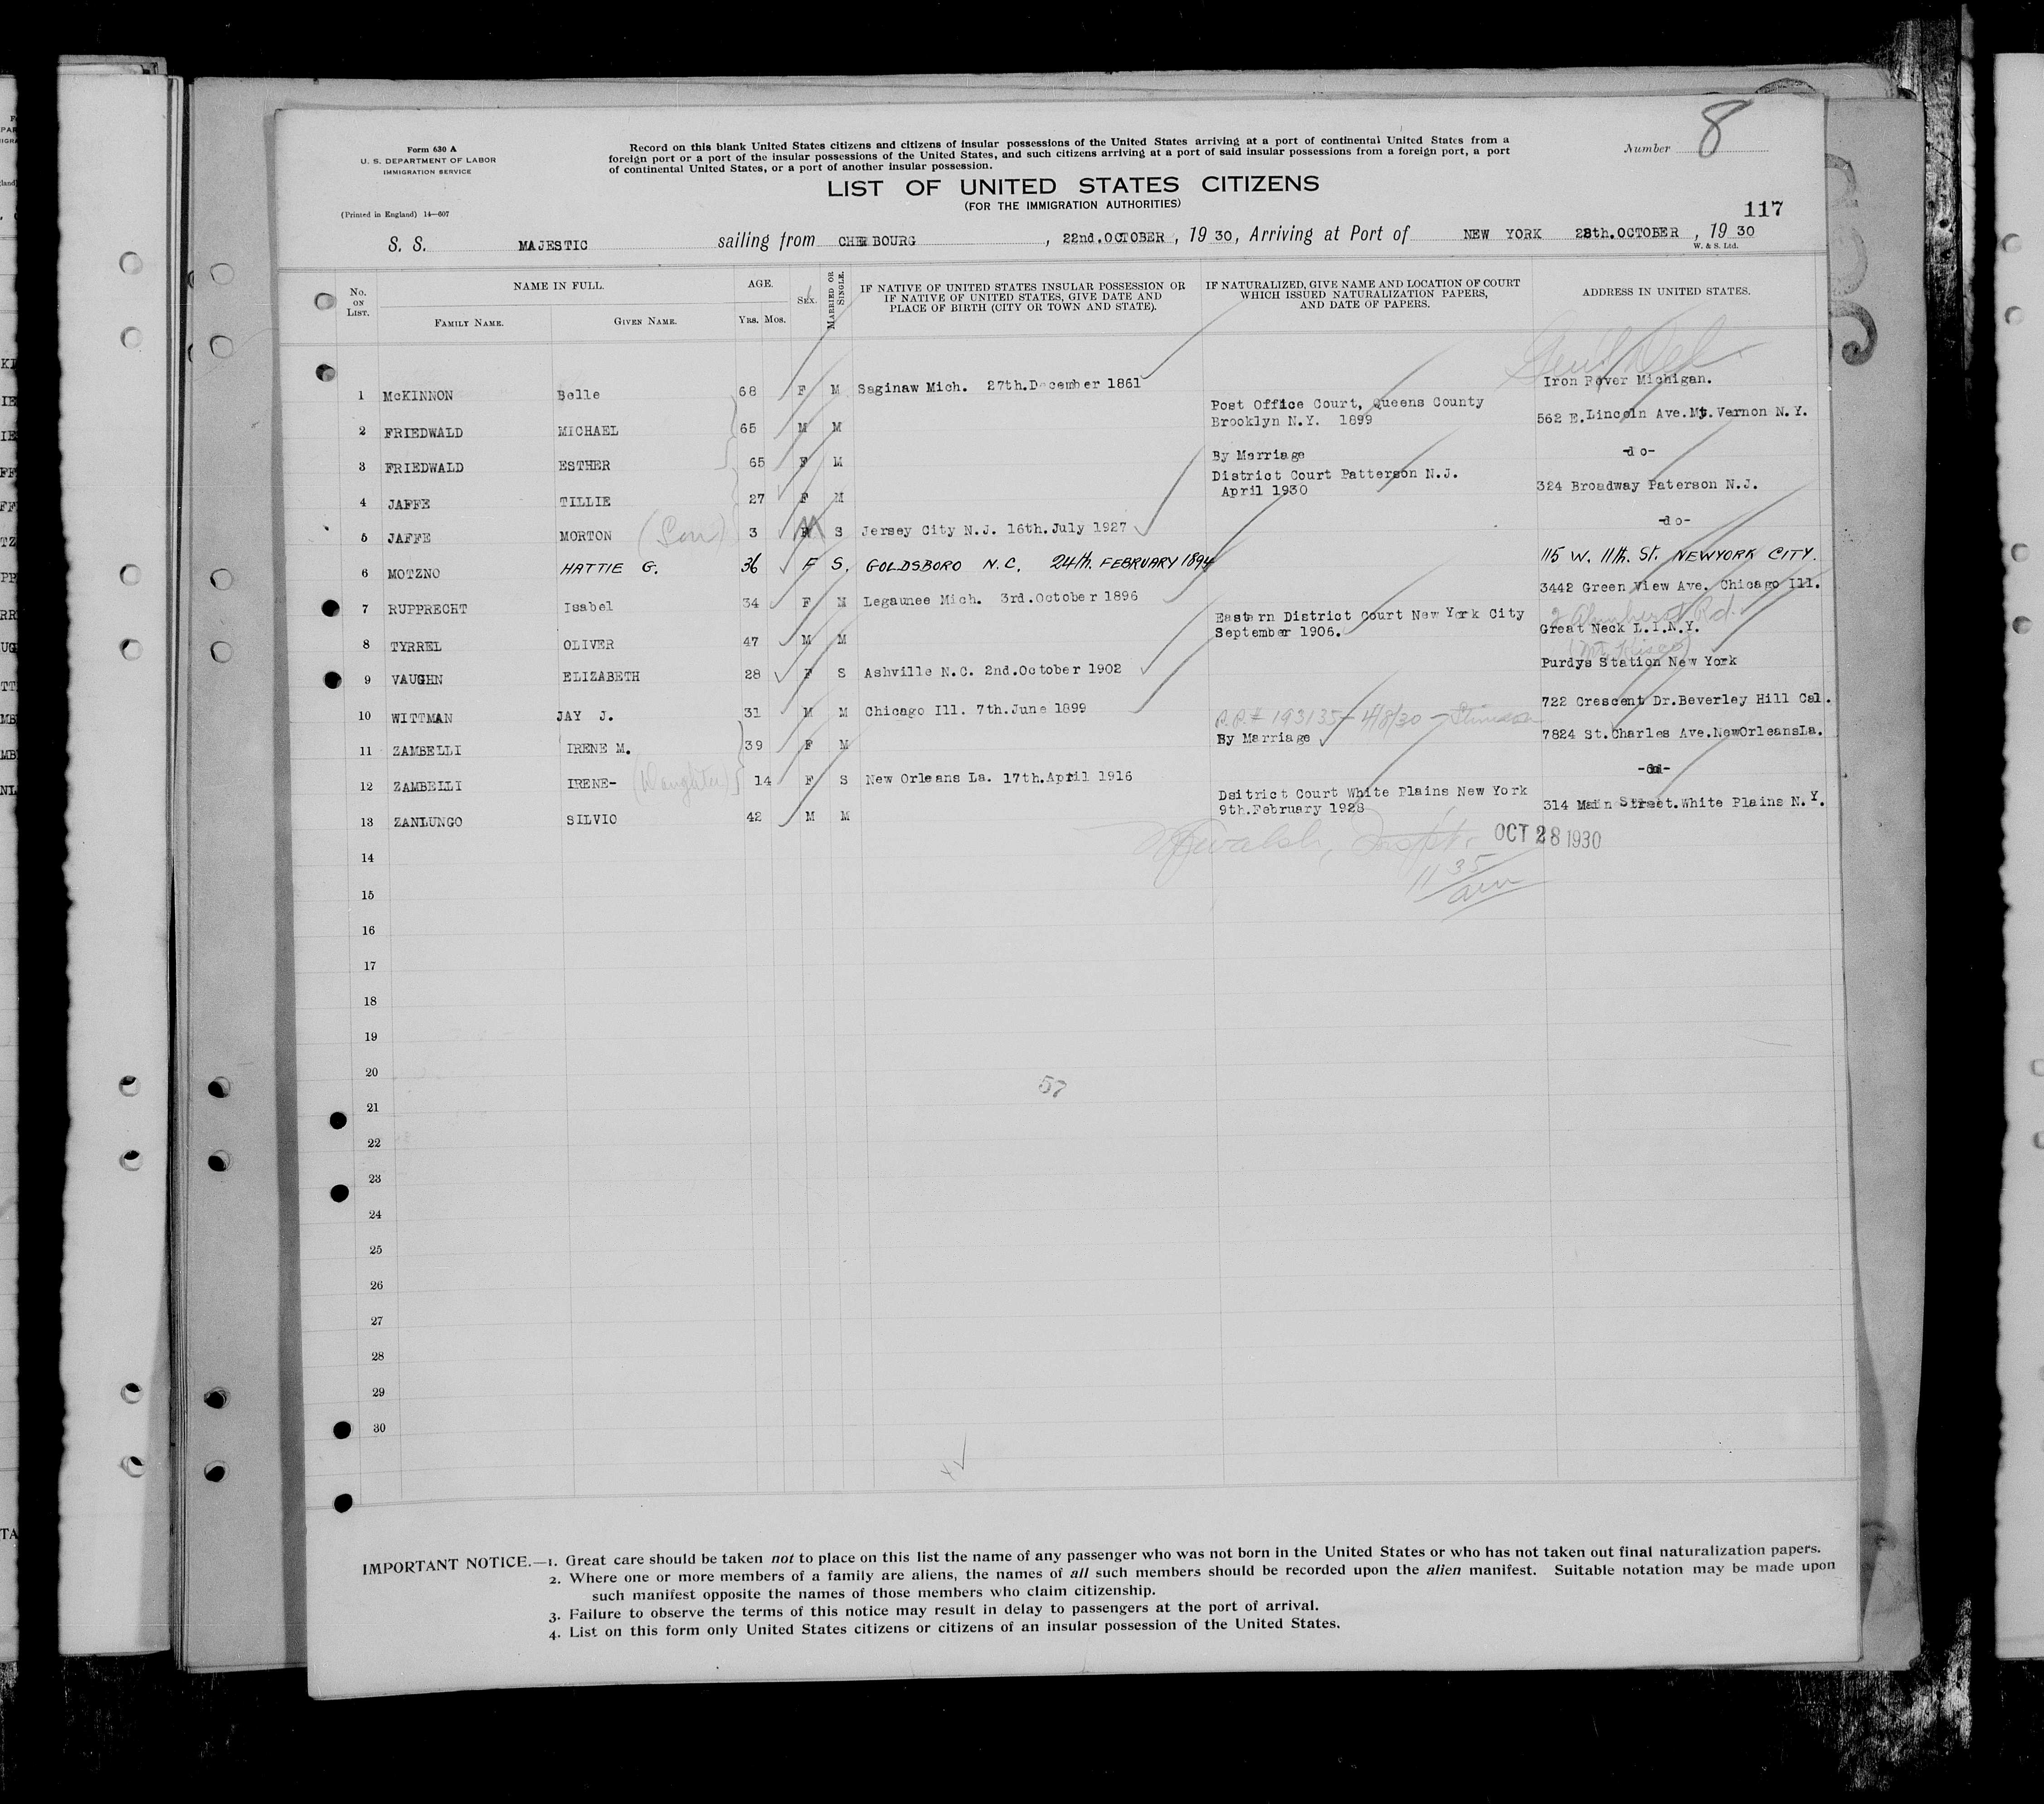 Form 630 A
U. S. DEPARTMENT OF LABOR
IMMIGRATION SERVICE
(Printed in England) 14—607
Record on this blank United States citizens and citizens of insular possessions of the United States arriving at a port of continental United States from a
foreign port or a port of the insular possessions of the United States, and such citizens arriving at a port of said insular possessions from a foreign port, a port
of continental United States, or a port of another insular possession.
Number 8
LIST OF UNITED STATES CITIZENS
(FOR THE IMMIGRATION AUTHORITIES)
117
S. S. MAJESTIC sailing from CHERBOURG , 22nd.OCTOBER , 19 30, Arriving at Port of NEW YORK 28th.OCTOBER , 19 30
W. & S. Ltd.
No. ON LIST. NAME IN FULL. AGE. SEX. MARRIED OR SINGLE. IF NATIVE OF UNITED STATES INSULAR POSSESSION OR IF NATIVE OF UNITED STATES, GIVE DATE AND PLACE OF BIRTH (CITY OR TOWN AND STATE). IF NATURALIZED, GIVE NAME AND LOCATION OF COURT WHICH ISSUED NATURALIZATION PAPERS, AND DATE OF PAPERS. ADDRESS IN UNITED STATES.
FAMILY NAME. GIVEN NAME. YRS. MOS.
1 McKINNON Belle 68 F M Saginaw Mich. 27th.December 1861 Iron Rover Michigan.
Post Office Court, Queens County
2 FRIEDWALD MICHAEL 65 M M Brooklyn N.Y. 1899 562 E.Lincoln Ave.Mt.Vernon N.Y.
3 FRIEDWALD ESTHER 65 F M By Marriage -do-
District Court Patterson N.J.
4 JAFFE TILLIE 27 F M April 1930 324 Broadway Paterson N.J.
5 JAFFE MORTON (Son) 3 M S Jersey City N.J. 16th.July 1927 -do-
6 MOTZNO HATTIE G. 36 F S. GOLDSBORO N.C. 24th. FEBRUARY 1894 115 W. 11th. St. NEWYORK CITY.
7 RUPPRECHT Isabel 34 F M Legaunee Mich. 3rd.October 1896 3442 Green View Ave. Chicago Ill.
Eastern District Court New York City
8 TYRREL OLIVER 47 M M September 1906. Great Neck L.I.N.Y.
9 VAUGHN ELIZABETH 28 F S Ashville N.C. 2nd.October 1902 Purdys Station New York
10 WITTMAN JAY J. 31 M M Chicago Ill. 7th.June 1899 722 Crescent Dr.Beverley Hill Cal.
P.P.# 193135- 4/8/30 - Stimson
11 ZAMBELLI IRENE M. 39 F M By Marriage 7824 St.Charles Ave.NewOrleansLa.
12 ZAMBELLI IRENE- (Daughter) 14 F S New Orleans La. 17th.April 1916
Dsitrict Court White Plains New York
13 ZANLUNGO SILVIO 42 M M 9th.February 1928 314 Main Street.White Plains N.Y.
Walsh, Inspt. OCT 28 1930
11 35 am
14
15
16
17
18
19
20
57
21
22
23
24
25
26
27
28
29
30
IMPORTANT NOTICE.—1. Great care should be taken not to place on this list the name of any passenger who was not born in the United States or who has not taken out final naturalization papers.
2. Where one or more members of a family are aliens, the names of all such members should be recorded upon the alien manifest. Suitable notation may be made upon
such manifest opposite the names of those members who claim citizenship.
3. Failure to observe the terms of this notice may result in delay to passengers at the port of arrival.
4. List on this form only United States citizens or citizens of an insular possession of the United States.